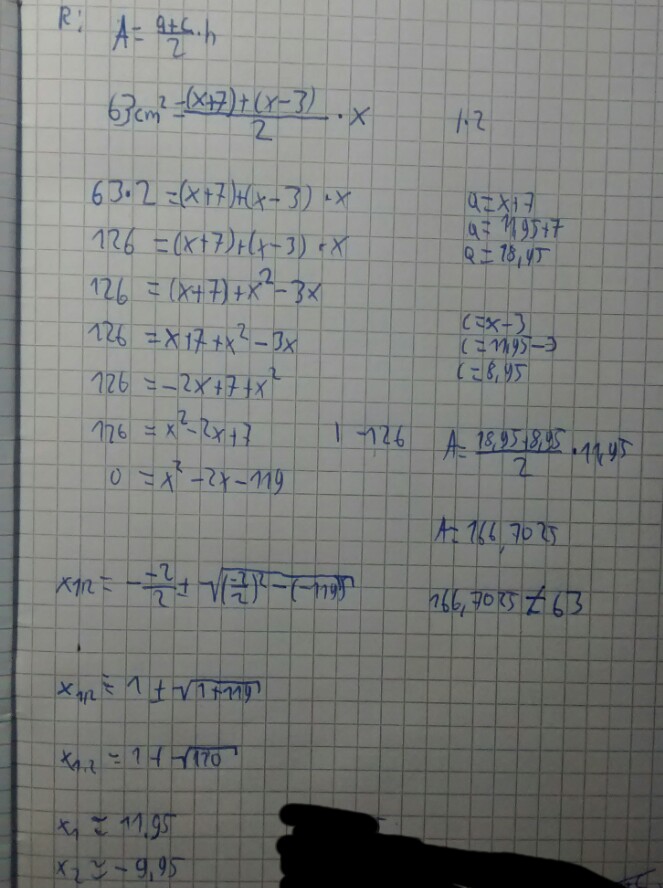 R: A = (a+c)/2 · h
63cm² = ((x+7)+(x-3))/2 · x | · 2
63·2 = (x+7)+(x-3) · x
126 = (x+7)+(x-3) · x
126 = (x+7)+x²-3x
126 = x+7+x²-3x
126 = -2x+7+x²
126 = x²-2x+7 | -126
0 = x²-2x-119
x1/2 = - -2/2 ± √((-2/2)² - (-119))
x1/2 = 1 ± √(1+119)
x1,2 = 1 ± √120
x1 ≈ 11,95
x2 ≈ -9,95
a = x+7
a = 11,95+7
a = 18,95
c = x-3
c = 11,95-3
c = 8,95
A = (18,95+8,95)/2 · 11,95
A = 166,7025
166,7025 ≠ 63